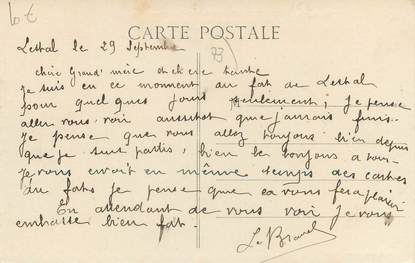 10 €
CARTE POSTALE
Lestal le 29 Septembre
73
chère Grand' mère et chère tante
Je suis en ce moment au fort de Lestal
pour quelques jours seulement; je pense
aller vous voir aussitot que j'aurais finis.
Je pense que vous allez toujours bien depuis
que je suis partis, bien le bonjour a tous
Je vous envoit en même temps des cartes
du fort je pense que ca vous fera plaisir
En attendant de vous voir je vous
embrasse bien fort.